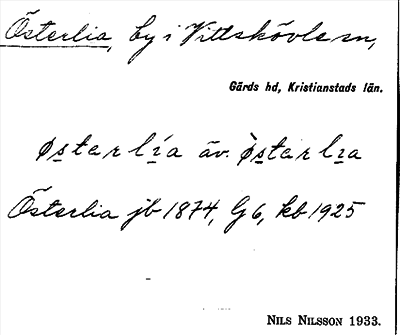 Österlia, by i Vittskövle sn,
Gärds hd, Kristianstads län.
østarlía äv. østàrlıa
Österlia jb 1874, G 6, kb 1925
NILS NILSSON 1933.